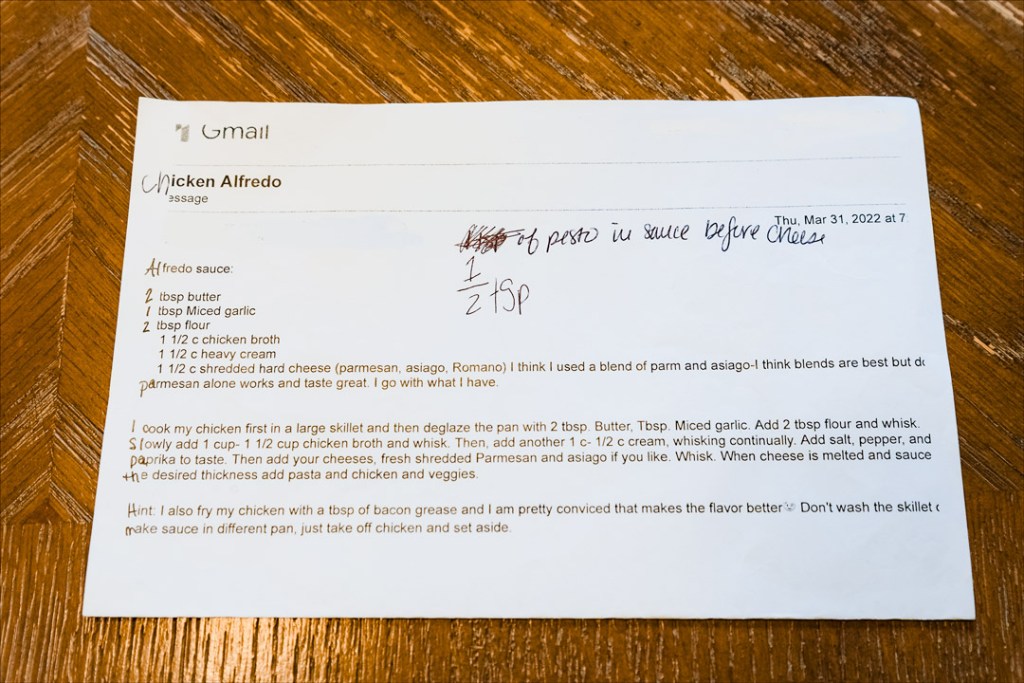 Gmail
Chicken Alfredo
essage
Thu, Mar 31, 2022 at 7
of pesto in sauce before cheese
1/2 tsp
Alfredo sauce:
2 tbsp butter
1 tbsp Miced garlic
2 tbsp flour
1 1/2 c chicken broth
1 1/2 c heavy cream
1 1/2 c shredded hard cheese (parmesan, asiago, Romano) I think I used a blend of parm and asiago-I think blends are best but
parmesan alone works and taste great. I go with what I have.
I cook my chicken first in a large skillet and then deglaze the pan with 2 tbsp. Butter, Tbsp. Miced garlic. Add 2 tbsp flour and whisk.
Slowly add 1 cup- 1 1/2 cup chicken broth and whisk. Then, add another 1 c- 1/2 c cream, whisking continually. Add salt, pepper, and
paprika to taste. Then add your cheeses, fresh shredded Parmesan and asiago if you like. Whisk. When cheese is melted and sauce
the desired thickness add pasta and chicken and veggies.
Hint: I also fry my chicken with a tbsp of bacon grease and I am pretty conviced that makes the flavor better Don't wash the skillet
make sauce in different pan, just take off chicken and set aside.